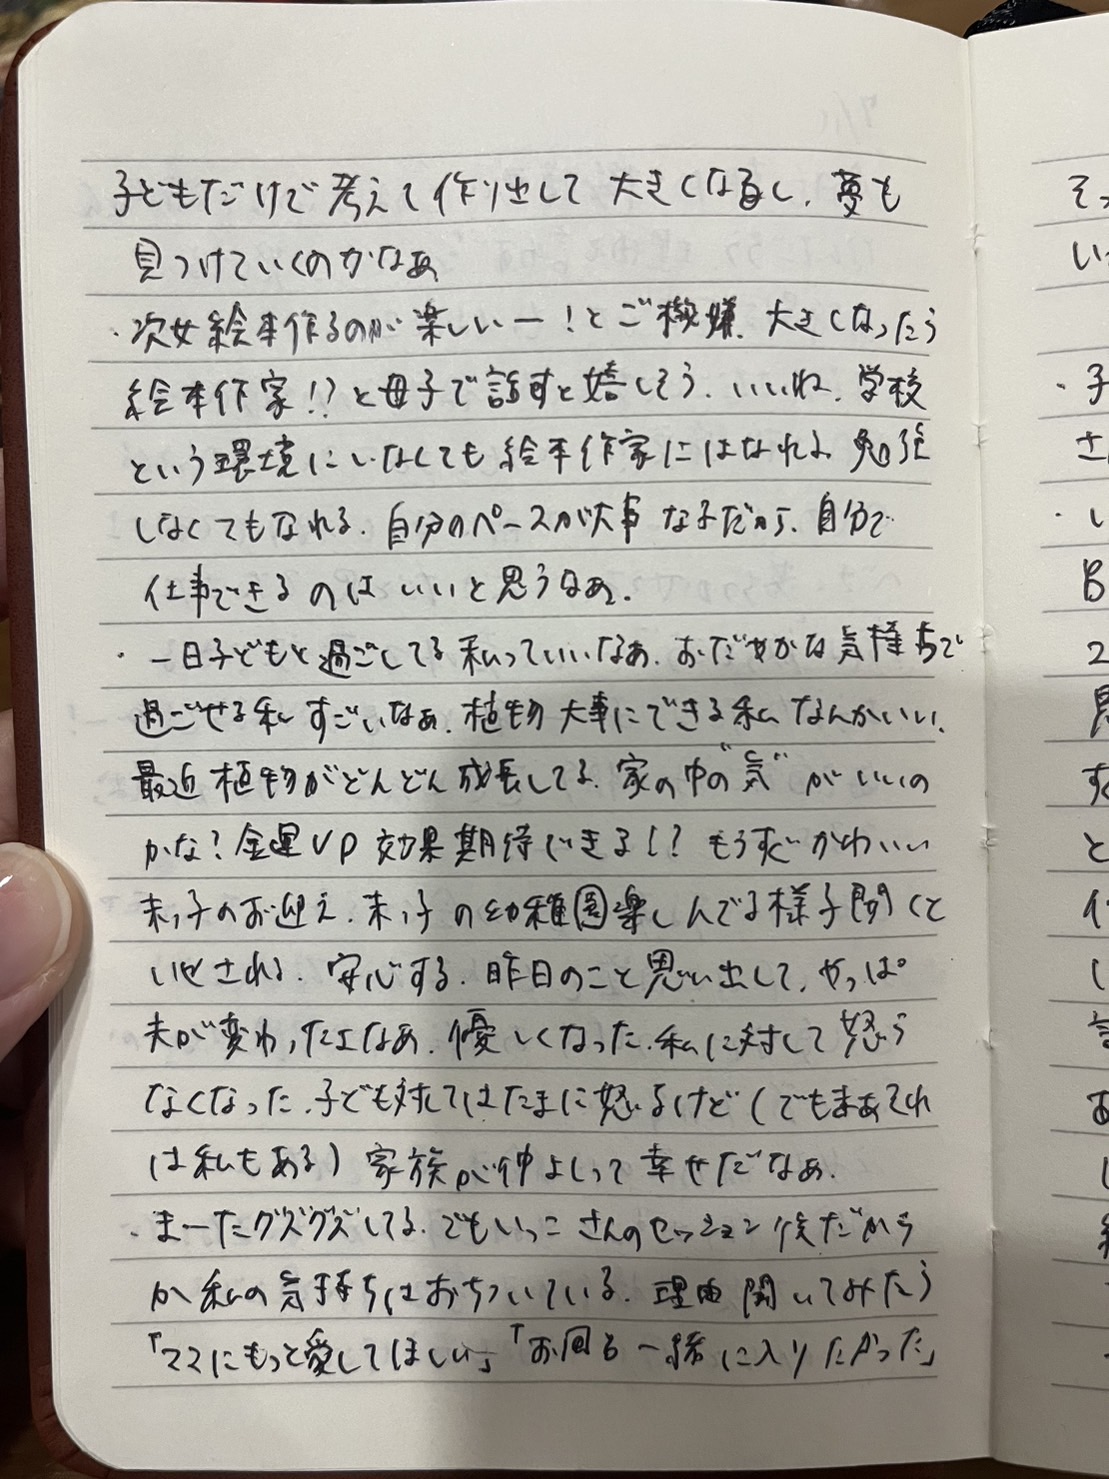 子どもだけで考えて作り出して大きくなるし、夢も
見つけていくのかなぁ
・次女絵本作るのが楽しいー！とご機嫌、大きくなったら
絵本作家!?と母子で話すと嬉しそう。いいね、学校
という環境にいなくても絵本作家にはなれるよ 勉強
しなくてもなれる。自分のペースが大事な子だから、自分で
仕事できるのはいいと思うなぁ。
・一日子どもと過ごしてる私っていいなぁ、おだやかな気持ちで
過ごせる私すごいなぁ。植物大事にできる私なんかいい、
最近植物がどんどん成長してる、家の中の"気"がいいの
かな？金運UP効果期待できる!？もうすぐかわいい
末っ子のお迎え、末っ子の幼稚園楽しんでる様子聞くと
いやされる、安心する。昨日のこと思い出して、やっぱ
夫が変わったよなぁ、優しくなった、私に対して怒ら
なくなった、子ども対してはたまに怒るけど（でもまぁそれ
は私もある）家族が仲よしって幸せだなぁ。
・まーたグズグズしてる、でもいっこさんのセッション後だから
か私の気持ちはおちついている。理由聞いてみたら
「ママにもっと愛してほしい」「お風呂一緒に入りたかった」
そっ
い
・子
・
B
2
す
と